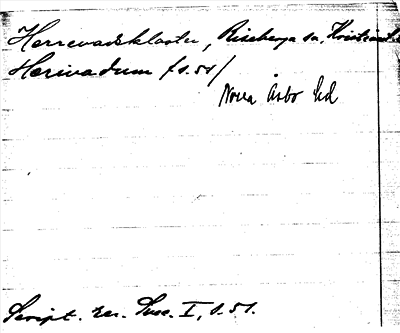 Herrevadskloster, Riseberga sn, Kristianst
Herivadum /s.51/
Norra Åsbo hd
Script. rer. Suec. I, s. 51.